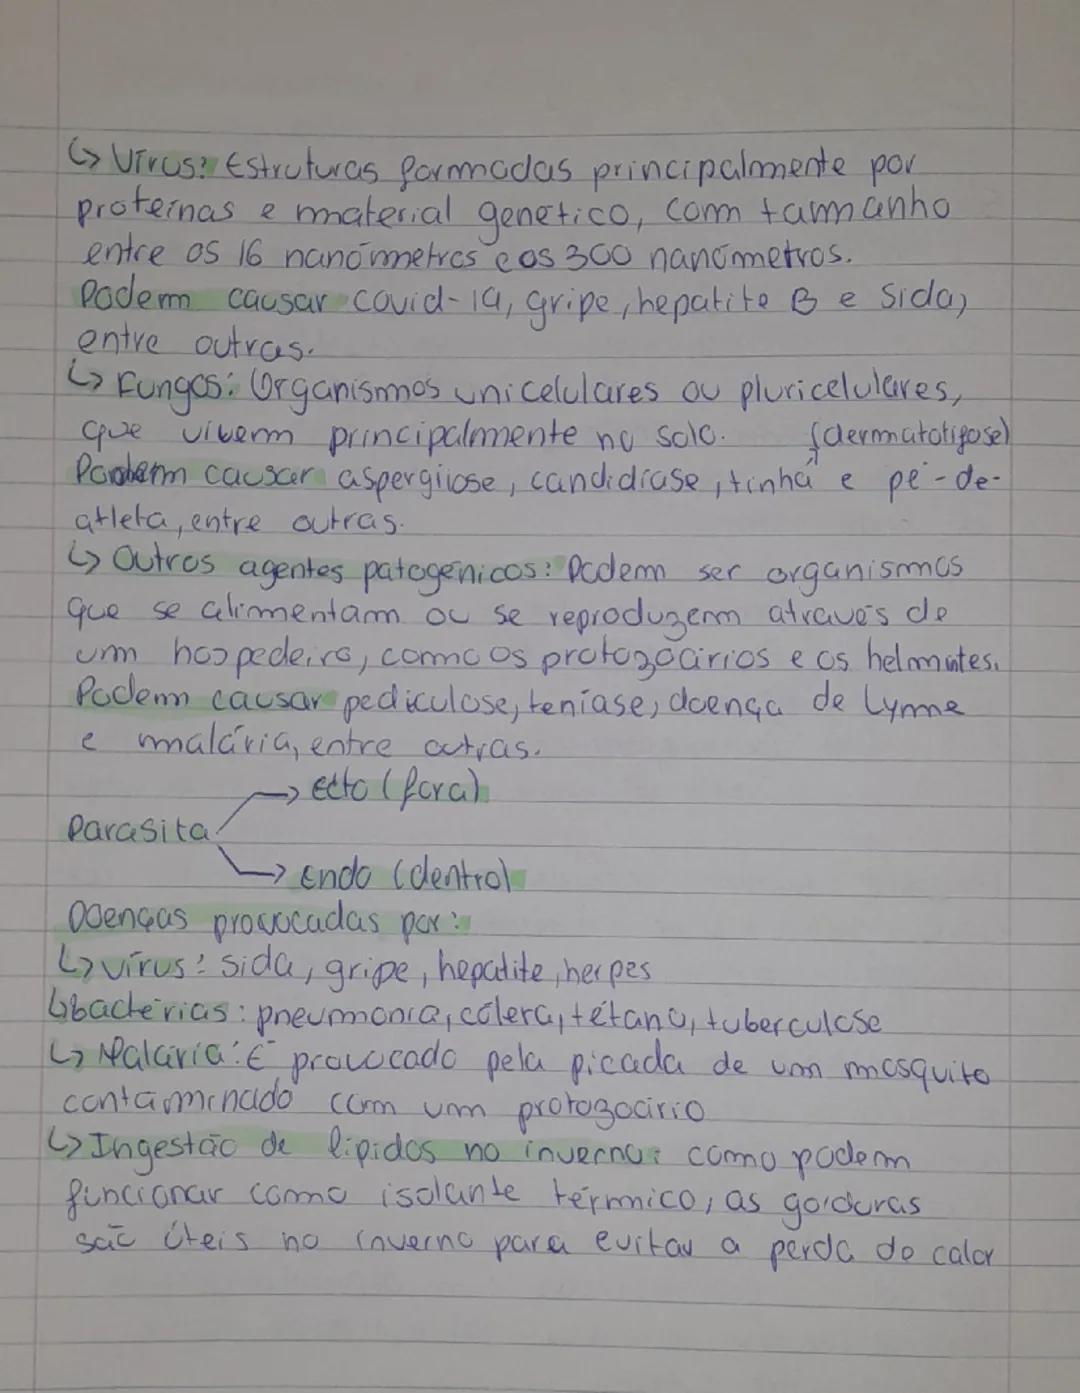 ↳ Vírus: Estruturas formadas principalmente por
proteínas e material genético, com tamanho
entre os 16 nanómetros e os 300 nanómetros.
Podem causar covid-19, gripe, hepatite B e Sida,
entre outras.
↳ Fungos: Organismos unicelulares ou pluricelulares,
que vivem principalmente no solo.
(dermatofitose)
Podem causar aspergilose, candidíase, tinha e pé-de-
atleta, entre outras.
↳ Outros agentes patogénicos: Podem ser organismos
que se alimentam ou se reproduzem através de
um hospedeiro, como os protozoários e os helmintes.
Podem causar pediculose, teníase, doença de Lyme
e malária, entre outras.
→ Ecto (fora)
Parasita
→ Endo (dentro)
Doenças provocadas por:
↳ vírus: sida, gripe, hepatite, herpes
↳ bactérias: pneumonia, cólera, tétano, tuberculose
↳ Malária: É provocado pela picada de um mosquito
contaminado com um protozoário
↳ Ingestão de lípidos no inverno: como podem
funcionar como isolante térmico, as gorduras
são úteis no inverno para evitar a perda do calor